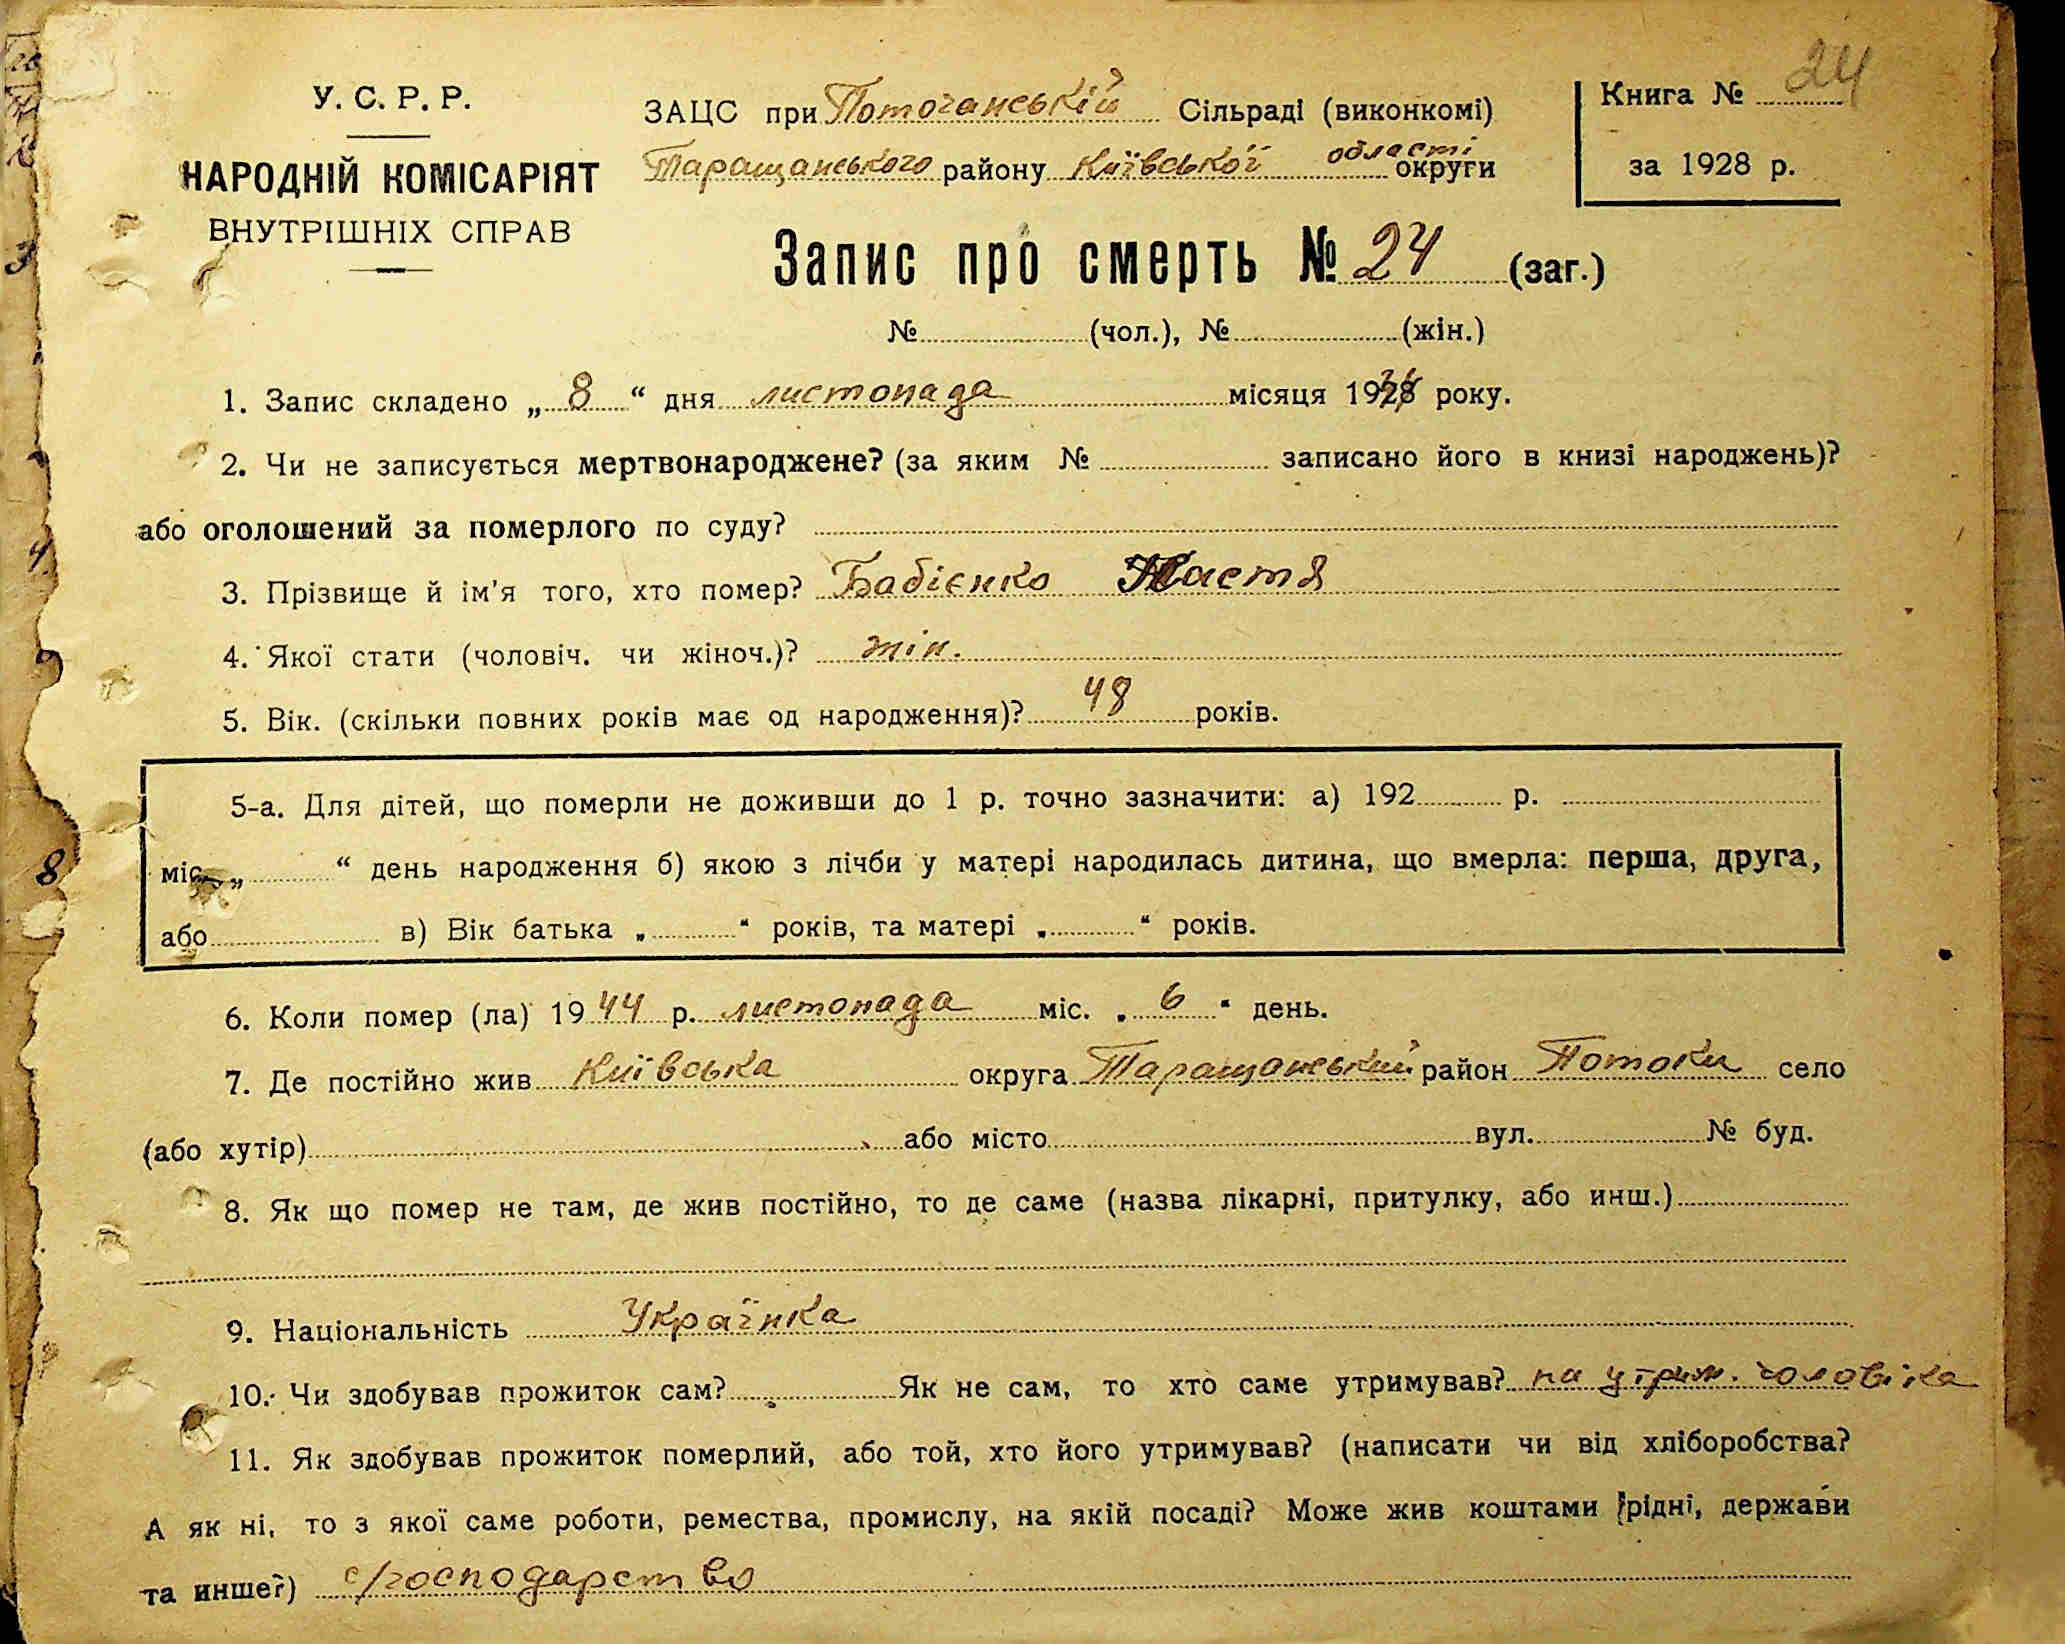 У. С. Р. Р.
НАРОДНІЙ КОМІСАРІЯТ
ВНУТРІШНІХ СПРАВ
ЗАЦС при Поточанській Сільраді (виконкомі)
Таращанського району Київської області округи
Книга № 24
за 1928 р.
Запис про смерть № 24 (заг.)
№ (чол.), № (жін.)
1. Запис складено „ 8 “ дня листопада місяця 19 року.
2. Чи не записується мертвонароджене? (за яким № записано його в книзі народжень)?
або оголошений за померлого по суду?
3. Прізвище й ім'я того, хто помер? Бабієнко Настя
4. Якої стати (чоловіч. чи жіноч.)? жін.
5. Вік. (скільки повних років має од народження)? 48 років.
5-а. Для дітей, що померли не доживши до 1 р. точно зазначити: а) 192 р.
міс. „ “ день народження б) якою з лічби у матері народилась дитина, що вмерла: перша, друга,
або в) Вік батька „ “ років, та матері „ “ років.
6. Коли помер (ла) 19 44 р. листопада міс. „ 6 “ день.
7. Де постійно жив Київська округа Таращанський район Потоки село
(або хутір) або місто вул. № буд.
8. Як що помер не там, де жив постійно, то де саме (назва лікарні, притулку, або инш.)
9. Національність Українка
10. Чи здобував прожиток сам? Як не сам, то хто саме утримував? на утрим. чоловіка
11. Як здобував прожиток померлий, або той, хто його утримував? (написати чи від хліборобства?
А як ні, то з якої саме роботи, ремества, промислу, на якій посаді? Може жив коштами рідні, держави
та инше?) с/господарство
3
4
8